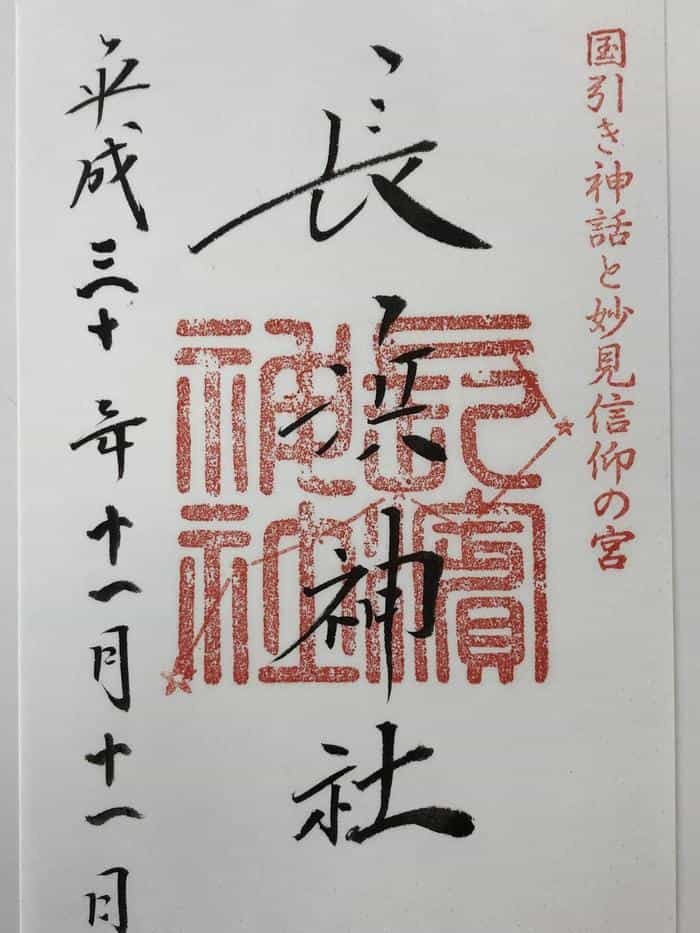 国引き神話と妙見信仰の宮
長浜神社
長濱神社
平成三十年十一月十一日